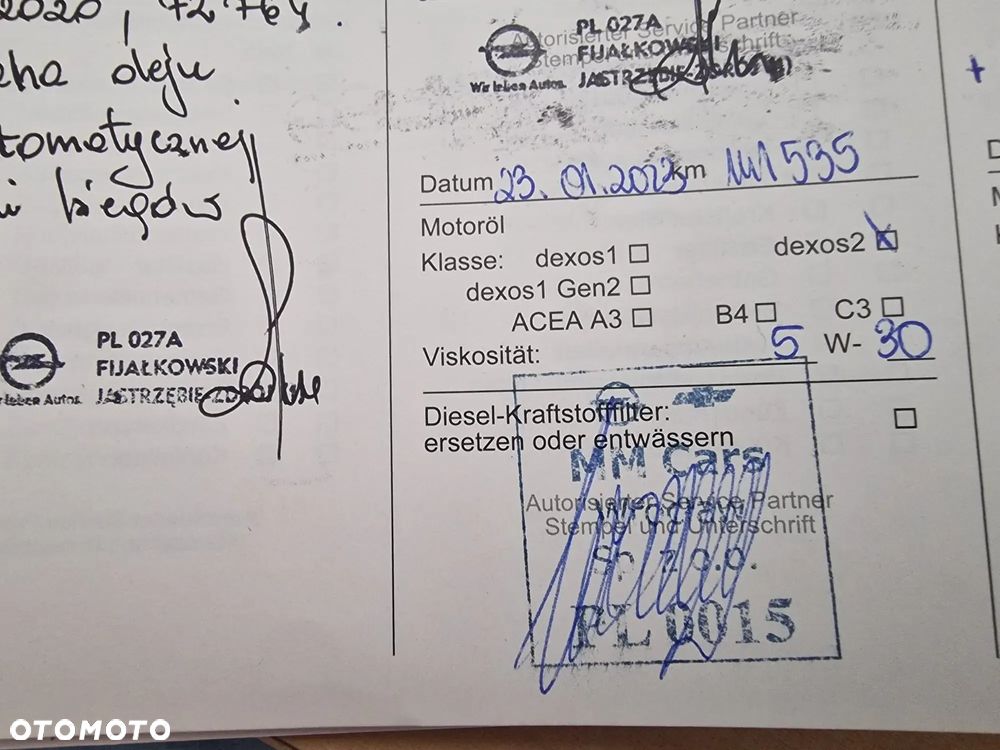 2020, 72 764.
oleju
tomatycznej
i biegów
PL 027A
FIJAŁKOWSKI
JASTRZĘBIE-ZDRÓJ
Wir leben Autos.
PL 027A
FIJAŁKOWSKI
JASTRZĘBIE-ZDRÓJ
Autorisierter Service Partner
Stempel und Unterschrift
Wir leben Autos.
Datum 23.01.2023 km 141535
Motoröl
Klasse: dexos1 dexos2 x
dexos1 Gen2
ACEA A3 B4 C3
Viskosität: 5 W- 30
Diesel-Kraftstofffilter:
ersetzen oder entwässern
MM Cars
Autorisierter Service Partner
Stempel und Unterschrift
Sp. z o.o.
PL 0015
OTOMOTO